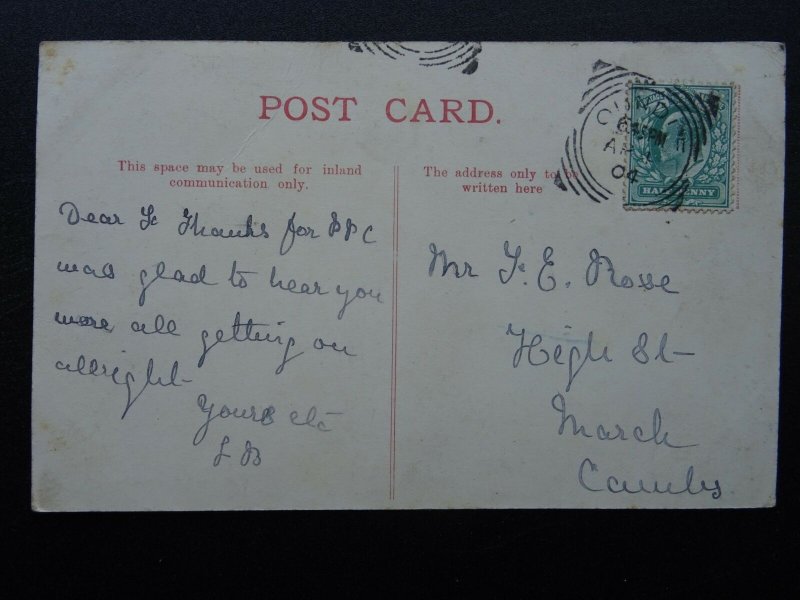 POST CARD.
This space may be used for inland
communication only.
The address only to be
written here
HALFPENNY
6.45PM
04
Dear F Thanks for PPC
was glad to hear you
were all getting on
allright
Yours etc
L B
Mr F. E. Rosse
High St
March
Cambs